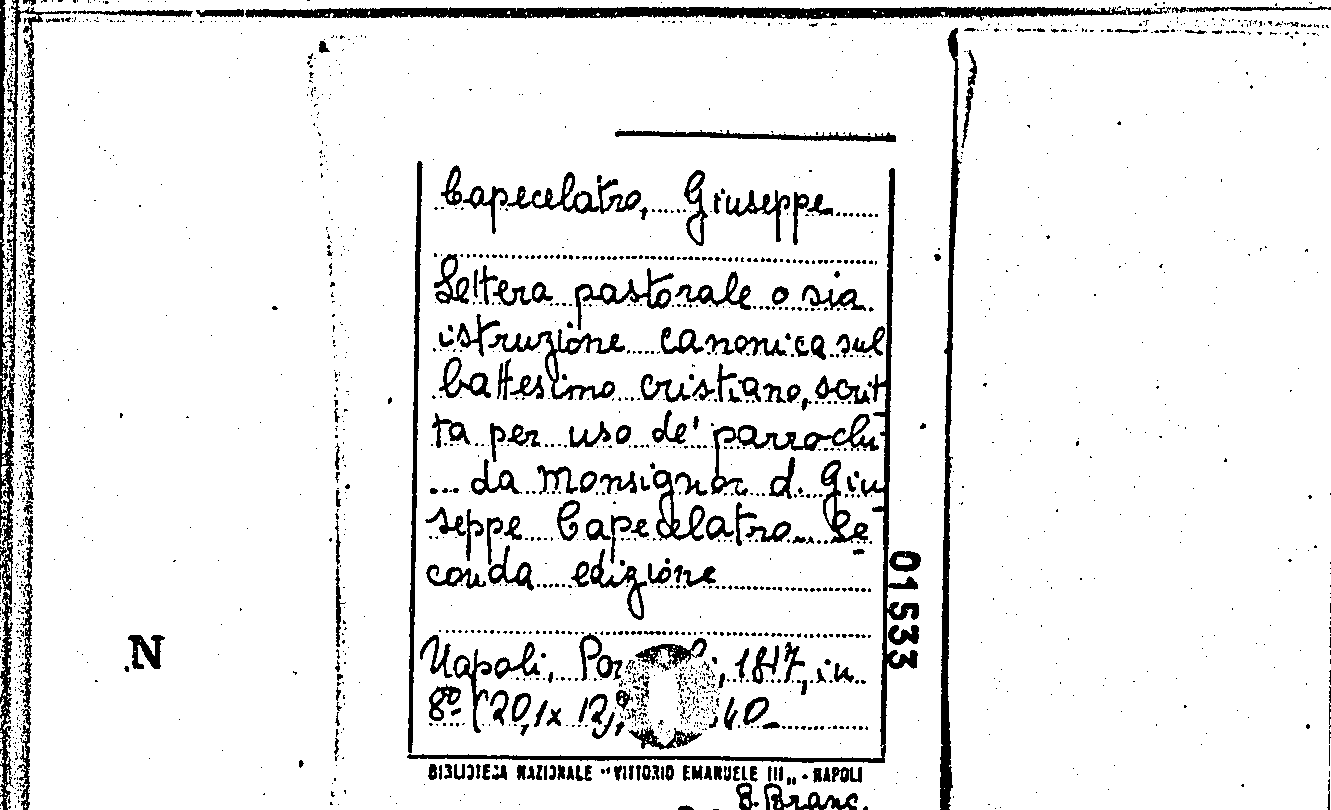 Capecelatro, Giuseppe
Lettera pastorale o sia
istruzione canonica sul
battesimo cristiano, scrit-
ta per uso de' parrochi
... da monsignor d. Giu-
seppe Capecelatro... Se-
conda edizione
Napoli, 1817, in
8º (20,1x
01533
N
BIBLIOTECA NAZIONALE "VITTORIO EMANUELE III" - NAPOLI
B. Branc.